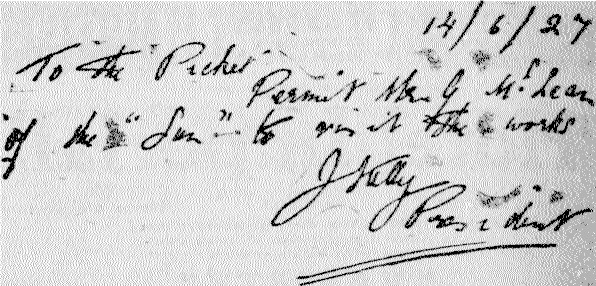 14/6/27
To the Picket
Permit Mr G McLean
of the "Sun" to visit the works
J Kelly
President